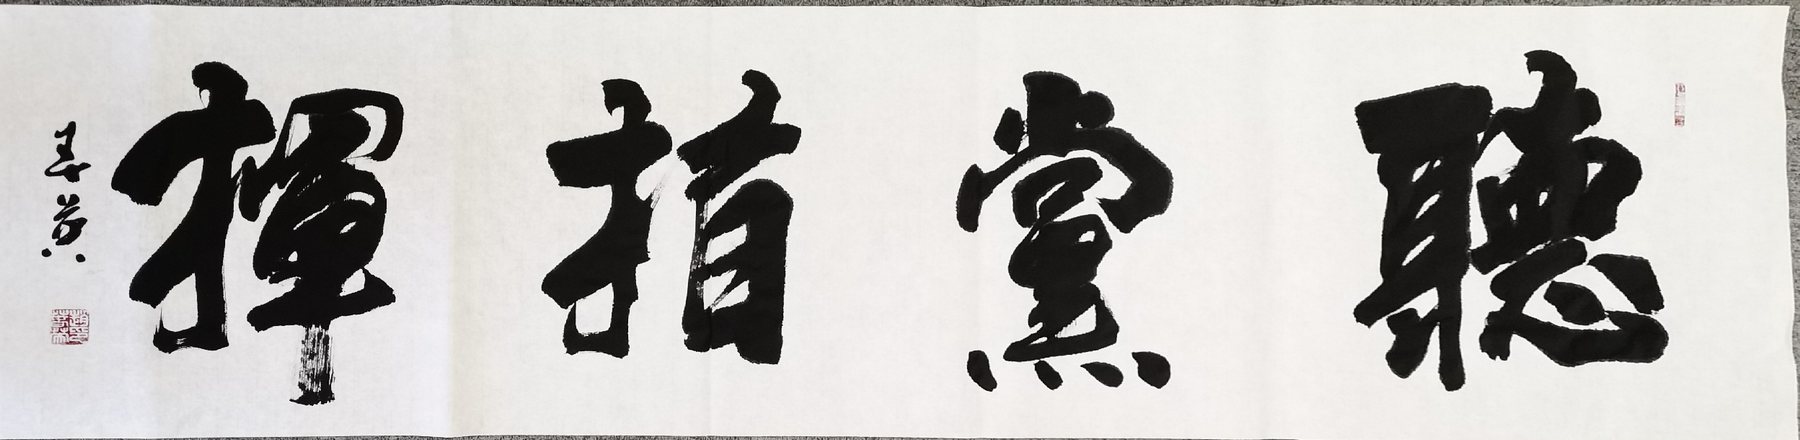 聽黨指揮